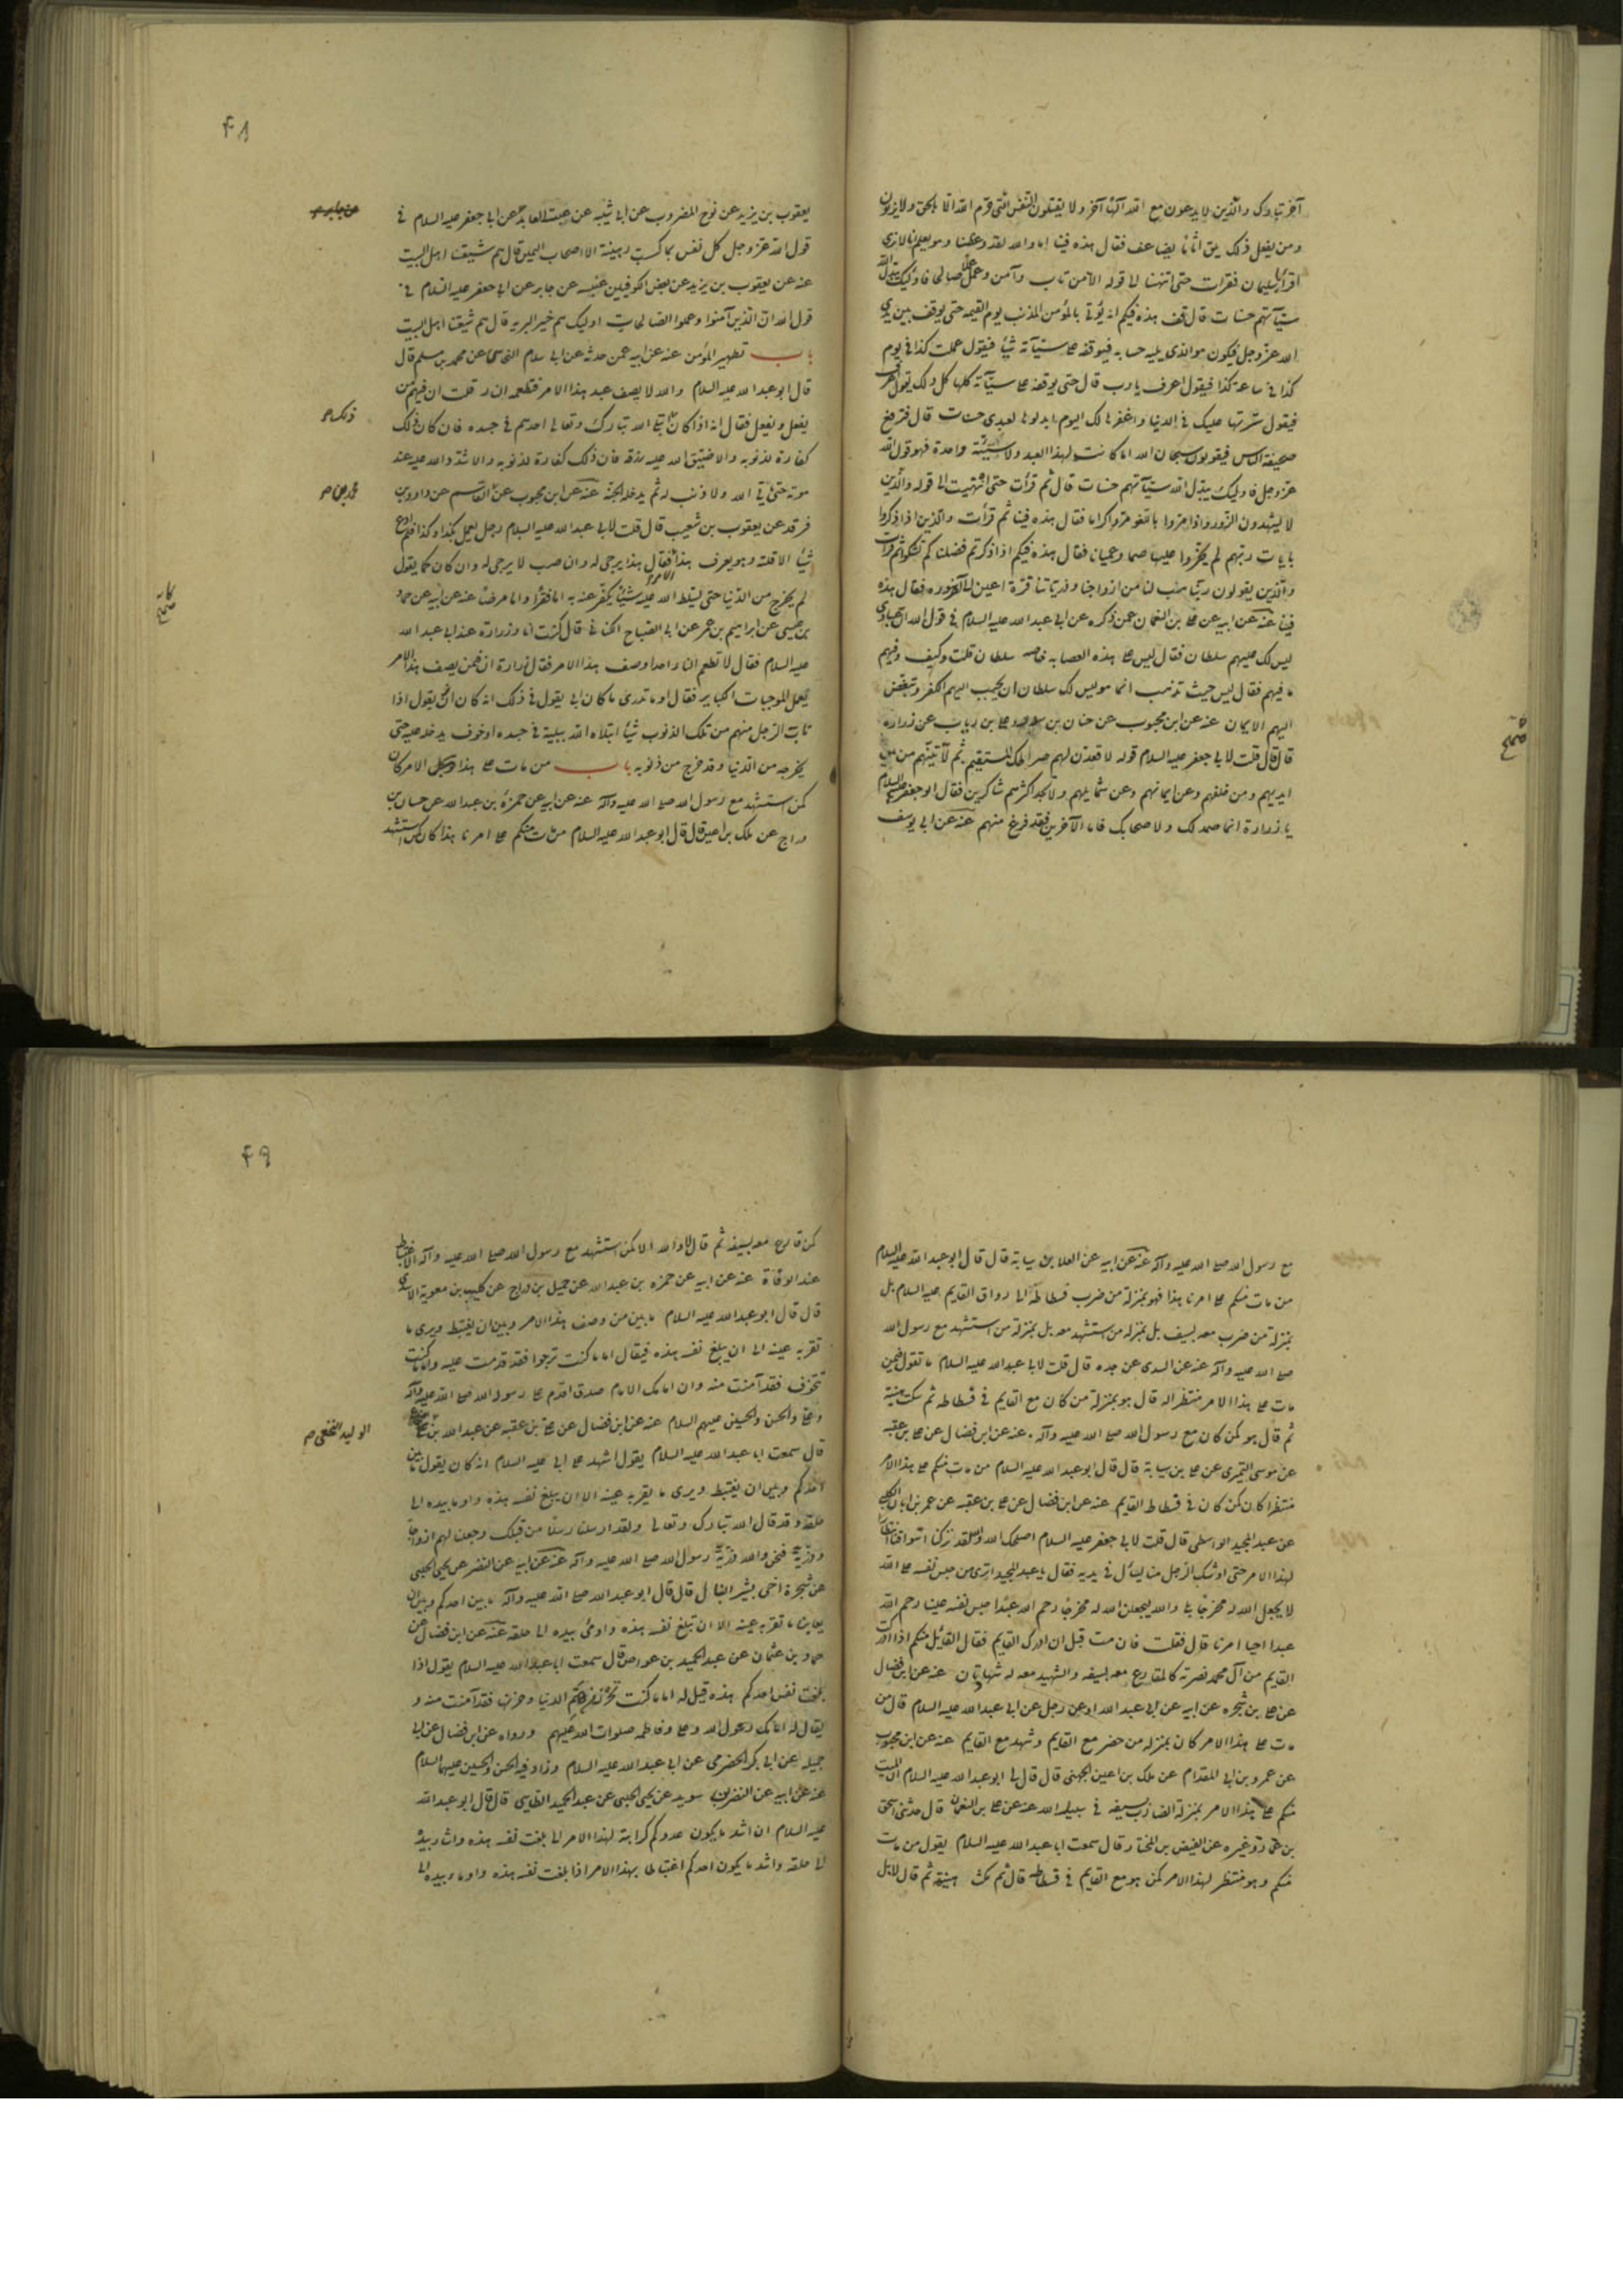 آخر تبارك والذين لا يدعون مع الله آلها آخر ولا يقتلون النفس التي حرم الله الا بالحق ولا يزنون
ومن يفعل ذلك يلق اثاما يضاعف فقال هذه فينا اما والله لقد وعظنا وهو يعلم انا لا نزني
اقرأ يا سليمان فقرأت حتى انتهيت الى قوله الا من تاب وآمن وعمل عملا صالحا فاولئك يبدل الله
سيآتهم حسنات قال قف هذه فيكم انه يؤتى بالمؤمن المذنب يوم القيمة حتى يوقف بين يدي
الله عز وجل فيكون هو الذي يلي حسابه فيوقفه على سيآته شيئا فشيئا فيقول عملت كذا في يوم
كذا في ساعة كذا فيقول اعرف يا رب قال حتى يوقفه على سيآته كلها كل ذلك يقول اعرف
فيقول سترتها عليك في الدنيا واغفرها لك اليوم ابدلوها لعبدي حسنات قال فترفع
صحيفته للناس فيقولون سبحان الله اما كانت لهذا العبد ولا سيئة واحدة فهو قول الله
عز وجل فاولئك يبدل الله سيآتهم حسنات قال ثم قرأت حتى انتهيت الى قوله والذين
لا يشهدون الزور واذا مروا باللغو مروا كراما فقال هذه فينا ثم قرأت والذين اذا ذكروا
بايات ربهم لم يخروا عليها صما وعميانا فقال هذه فيكم اذا ذكرتم فضلنا لم تشكوا ثم قرأت
والذين يقولون ربنا هب لنا من ازواجنا وذرياتنا قرة اعين الى آخر السورة فقال هذه
فينا عنه عن ابيه عن علي بن النعمان عمن ذكره عن ابي عبد الله عليه السلام في قول الله ان عبادي
ليس لك عليهم سلطان فقال ليس على هذه العصابة خاصة سلطان قلت وكيف وفيهم
ما فيهم فقال ليس حيث تذهب انما هو ليس لك سلطان ان يحبب اليهم الكفر وتبغض
اليهم الايمان عنه عن ابن محبوب عن حنان بن سدير وعلي بن رياب عن زرارة
قال قلت لابي جعفر عليه السلام قوله لاقعدن لهم صراطك المستقيم ثم لآتينهم من بين
ايديهم ومن خلفهم وعن ايمانهم وعن شمائلهم ولا تجد اكثرهم شاكرين فقال ابو جعفر عليه السلام
يا زرارة انما صمد لك ولاصحابك فاما الآخرين فقد فرغ منهم عنه عن ابي يوسف
صح
۴۸
يعقوب بن يزيد عن نوح المضروب عن ابي شيبة عن عنبسة العابد عن ابي جعفر عليه السلام في
قول الله عز وجل كل نفس بما كسبت رهينة الا اصحاب اليمين قال هم شيعتنا اهل البيت
عنه عن يعقوب بن يزيد عن بعض الكوفيين عن عنبسة عن جابر عن ابي جعفر عليه السلام في
قول الله ان الذين آمنوا وعملوا الصالحات اولئك هم خير البرية قال هم شيعتنا اهل البيت
باب تطهير المؤمن عنه عن ابيه عمن حدثه عن ابي سلام النخاس عن محمد بن مسلم قال
قال ابو عبد الله عليه السلام والله لا يصف عبد هذا الامر فتطعمه النار قلت ان فيهم من
يفعل ويفعل فقال انه اذا كان ذلك ابتلى الله تبارك وتعالى احدهم في جسده فان كان ذلك
كفارة لذنوبه والا ضيق الله عليه رزقه فان كان ذلك كفارة لذنوبه والا شدد الله عليه عند
موته حتى يأتي الله ولا ذنب له ثم يدخله الجنة عنه عن ابن محبوب عن القاسم عن داود بن
فرقد عن يعقوب بن شعيب قال قلت لابي عبد الله عليه السلام رجل يعمل بكذا وكذا فلم ادع
شيئا الا قلته وهو يعرف هذا الامر فقال هذا يرجى له والناصب لا يرجى له وان كان كما يقول
لم يخرج من الدنيا حتى يسلط الله عليه شيئا يكفر عنه به اما فقرا واما مرضا عنه عن ابيه عن حماد
بن عيسى عن ابراهيم بن عمر عن ابي الصباح الكناني قال كنت انا وزرارة عند ابي عبد الله
عليه السلام فقال لا تطعم النار احدا وصف هذا الامر فقال زرارة ان فيمن يصف هذا الامر
يعمل الموجبات الكباير فقال او ما تدري ما كان ابي يقول في ذلك انه كان ابي يقول اذا
تاب الرجل منهم من تلك الذنوب شيئا ابتلاه الله ببلية في جسده او خوف يدخله عليه حتى
يخرجه من الدنيا وقد خرج من ذنوبه باب من مات على هذا الامر كان
كمن استشهد مع رسول الله صلى الله عليه وآله عنه عن ابيه عن حمزة بن عبد الله عن حسان بن
دراج عن ملك بن اعين قال قال ابو عبد الله عليه السلام من مات منكم على امرنا هذا كان كمن استشهد
ذلك
صح
مع رسول الله صلى الله عليه وآله عنه عن ابيه عن العلا بن سيابة قال قال ابو عبد الله عليه السلام
من مات منكم على امرنا هذا فهو بمنزلة من ضرب فسطاطه الى رواق القايم عليه السلام بل
بمنزلة من ضرب معه بسيف بل بمنزلة من استشهد معه بل بمنزلة من استشهد مع رسول الله
صلى الله عليه وآله عنه عن السندي عن جده قال قلت لابي عبد الله عليه السلام ما تقول فيمن
مات على هذا الامر منتظرا له قال هو بمنزلة من كان مع القايم في فسطاطه ثم سكت هنيئة
ثم قال هو كمن كان مع رسول الله صلى الله عليه وآله عنه عن ابن فضال عن علي بن عقبة
عن موسى النميري عن علا بن سيابة قال قال ابو عبد الله عليه السلام من مات منكم على هذا الامر
منتظرا كان كمن كان في فسطاط القايم عنه عن ابن فضال عن علي بن عقبة عن عمر بن ابان الكلبي
عن عبد المجيد الواسطي قال قلت لابي جعفر عليه السلام اصلحك الله والله لقد تركنا اسواقنا انتظارا
لهذا الامر حتى اوشك الرجل منا يسأل في يديه فقال يا عبد المجيد اترى من حبس نفسه على الله
لا يجعل الله له مخرجا بلى والله ليجعلن الله له مخرجا رحم الله عبدا حبس نفسه علينا رحم الله
عبدا احيا امرنا قال فقلت فان مت قبل ان ادرك القايم فقال القائل منكم اذا ادركت
القايم من آل محمد نصرته كالمقارع معه بسيفه والشهيد معه له شهادتان عنه عن ابن فضال
عن علي بن شجرة عن ابيه عن ابي عبد الله او عن رجل عن ابي عبد الله عليه السلام قال من
مات على هذا الامر كان بمنزلة من حضر مع القايم وشهد مع القايم عنه عن ابن محبوب
عن عمرو بن ابي المقدام عن ملك بن اعين الجهني قال قال لي ابو عبد الله عليه السلام ان الميت
منكم على هذا الامر بمنزلة الضارب بسيفه في سبيل الله عنه عن علي بن النعمان قال حدثني اسحق
بن عمار وغيره عن الفيض بن المختار قال سمعت ابا عبد الله عليه السلام يقول من مات
منكم وهو منتظر لهذا الامر كمن هو مع القايم في فسطاطه قال ثم مكث هنيئة ثم قال لا بل
۴۹
كمن قارع معه بسيفه ثم قال لا والله الا كمن استشهد مع رسول الله صلى الله عليه وآله الاغتباط
عند الوفاة عنه عن ابيه عن حمزه بن عبد الله عن جميل بن دراج عن كليب بن معوية الاسدي
قال قال ابو عبد الله عليه السلام ما بين من وصف هذا الامر وبين ان يغتبط ويرى ما
تقر به عينه الا ان يبلغ نفسه هذه فيقال اما ما كنت ترجوا فقد قدمت عليه واما ما كنت
تتخوف فقد آمنت منه وان امامك الامام صدق اقدم على رسول الله صلى الله عليه وآله
وعلي والحسن والحسين عليهم السلام عنه عن ابن فضال عن علي بن عقبه عن عبد الله بن
قال سمعت ابا عبد الله عليه السلام يقول اشهد على ابي عليه السلام انه كان يقول ما بين
احدكم وبين ان يغتبط ويرى ما يقر به عينه الا ان يبلغ نفسه هذه واوما بيده الى
حلقه وقد قال الله تبارك وتعالى ولقد ارسلنا رسلا من قبلك وجعلنا لهم ازواجا
وذرية فنحن والله ذرية رسول الله صلى الله عليه وآله عنه عن ابيه عن النضر عن يحيى الحلبي
عن شجرة اخي بشير النبال قال قال ابو عبد الله صلى الله عليه وآله ما بين احدكم وبين ان
يعاين ما تقر به عينه الا ان تبلغ نفسه هذه واومى بيده الى حلقه عنه عن ابن فضال عن
حماد بن عثمان عن عبد الحميد بن عواض قال سمعت ابا عبد الله عليه السلام يقول اذا
بلغت نفس احدكم هذه قيل له اما ما كنت تحزن من هم الدنيا وحزنها فقد آمنت منه و
يقال له امامك رسول الله وعلي وفاطمه صلوات الله عليهم ورواه عن ابن فضال عن ابي
جميله عن ابي بكر الحضرمي عن ابي عبد الله عليه السلام وزاد فيه الحسن والحسين عليهما السلام
عنه عن ابيه عن النضر بن سويد عن يحيى الحلبي عن عبد الحميد الطايي قال قال ابو عبد الله
عليه السلام ان اشد ما يكون عدوكم كراهة لهذا الامر اذا بلغت نفسه هذه واشار بيده
الى حلقه واشد ما يكون احدكم اغتباطا بهذا الامر اذا بلغت نفسه هذه واوما بيده الى
الوليد النخعي م